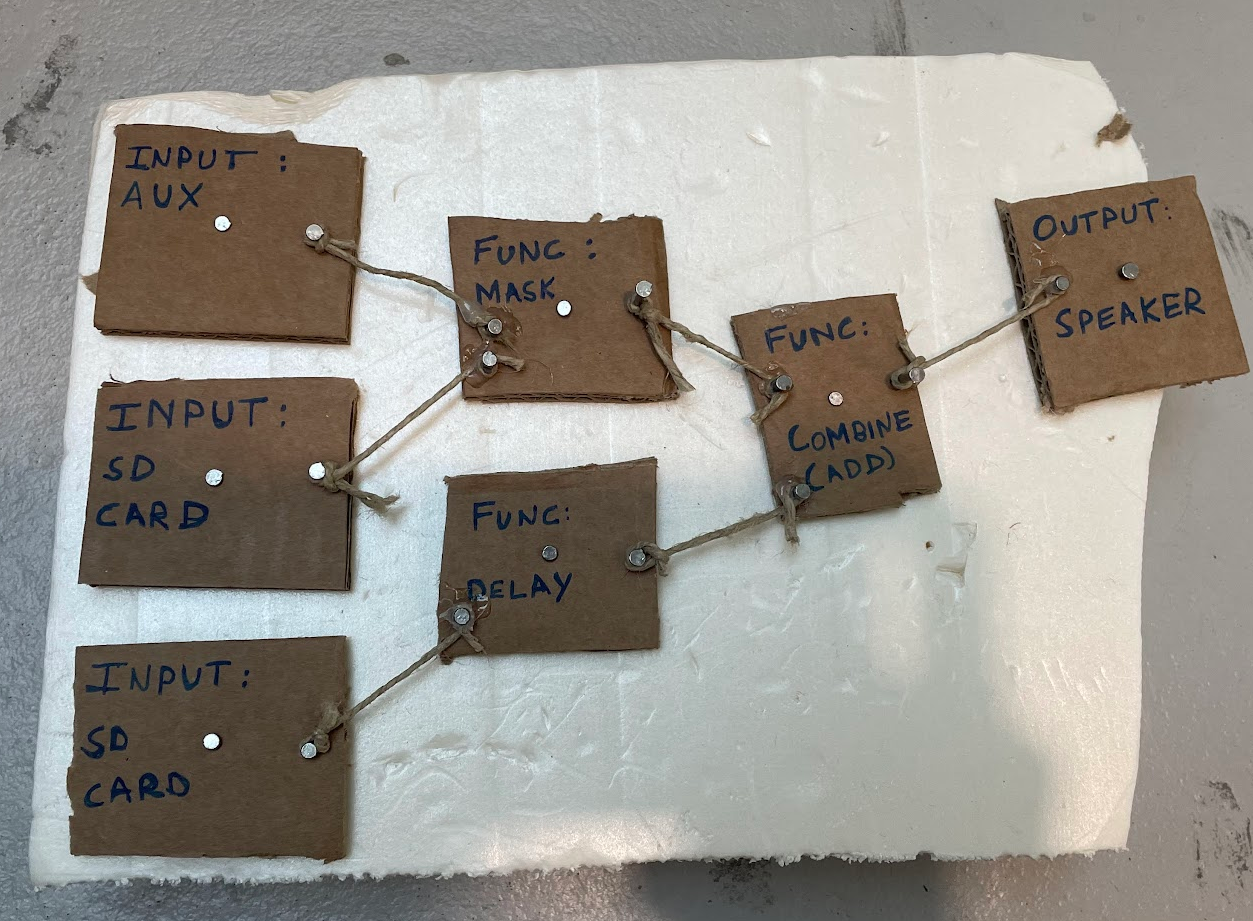 INPUT :
AUX
INPUT:
SD
CARD
INPUT:
SD
CARD
FUNC :
MASK
FUNC:
DELAY
FUNC:
COMBINE
(ADD)
OUTPUT:
SPEAKER